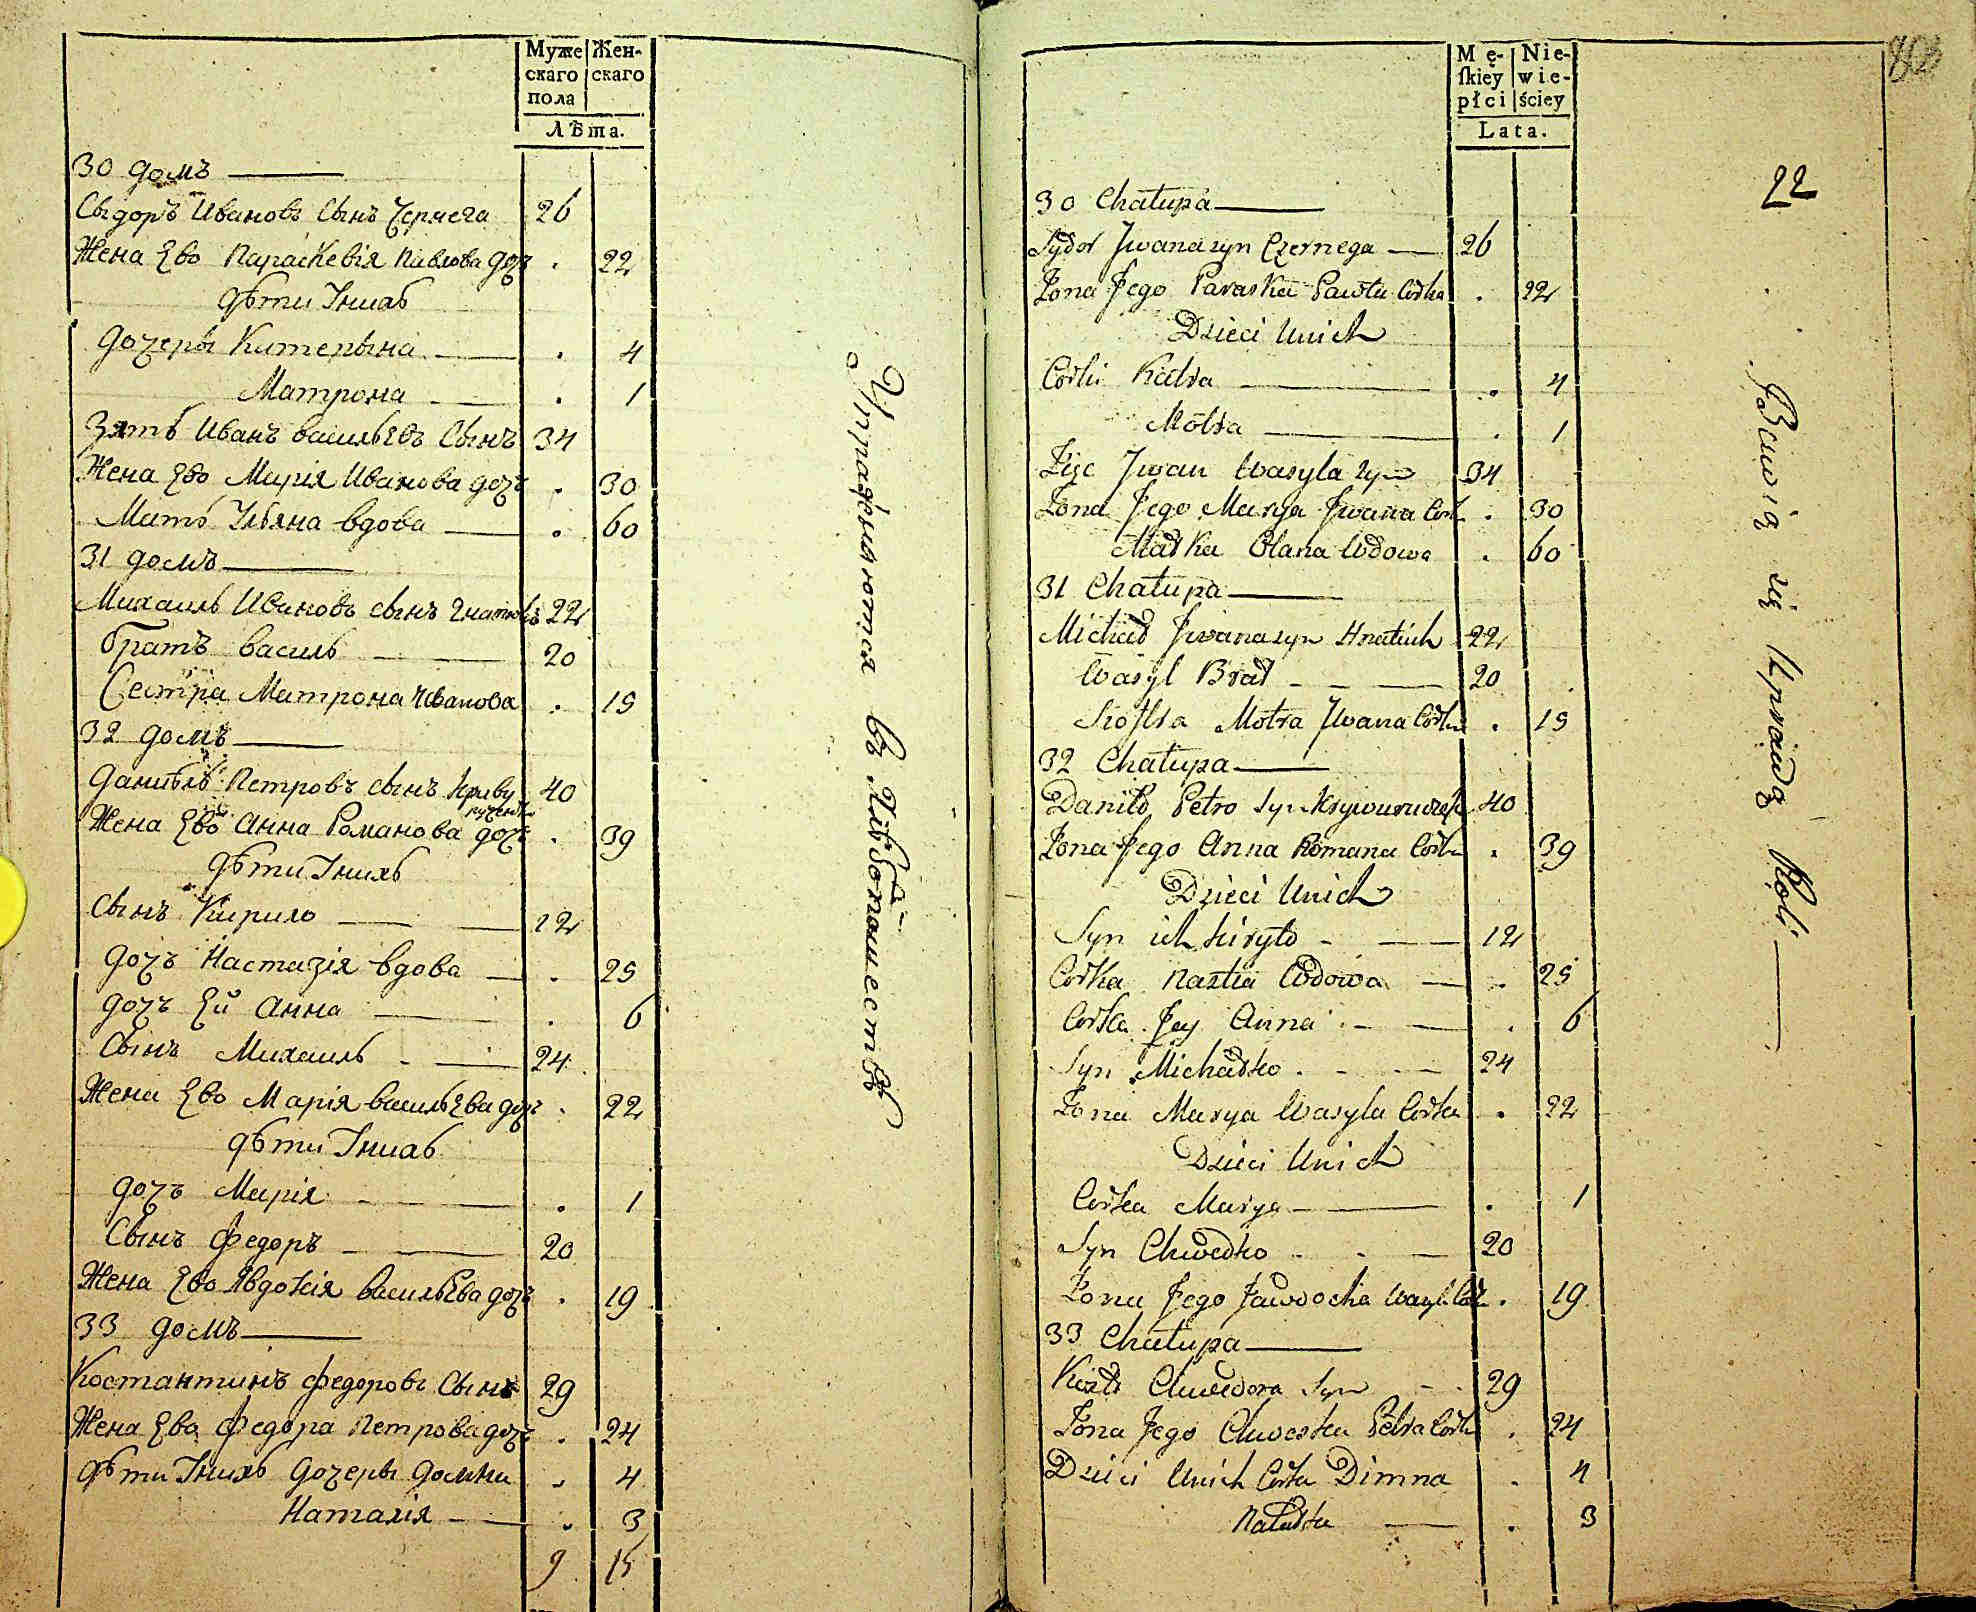 Муже
скаго
пола
Жен-
скаго
Лѣта.
30 домъ
Сыдоръ Ивановъ Сынъ Чернега 26
Жена Ево Параскевія Павлова дочъ . 22
Дѣти У нихъ
Дочеры Катерына . 4
Матрона . 1
Зять Иванъ Васильевъ Сынъ 34
Жена Ево Марія Иванова дочъ . 30
Мать Ульяна вдова . 60
31 домъ
Михаилъ Ивановъ сынъ Гнатюкъ 22
Братъ Василь 20
Сестра Матрона Иванова . 15
32 домъ
Данило Петровъ сынъ Криву
ручечко 40
Жена Ево Анна Романова дочъ . 39
Дѣти У нихъ
Сынъ Кирило 12
Дочъ Настазія вдова . 25
Дочъ Ей Анна . 6
Сынъ Михаилъ 24
Жена Ево Марія Васильева дочъ . 22
Дѣти У нихъ
Дочъ Марія . 1
Сынъ Федоръ 20
Жена Ево Явдокія Васильева дочъ . 19
33 домъ
Костантинъ Федоровъ Сынъ 29
Жена Ево Федора Петрова дочъ . 24
Дѣти У нихъ Дочеры Домни . 4
Наталія . 3
9 15
Упражняются въ хлѣбопашествѣ
Mę-
skiey
płci
Nie-
wie-
ściey
Lata.
22
30 Chałupa
Sydor Jwana syn Czernega 26
Żona Jego Paraska Pawła Corka . 22
Dzieci Unich
Corki Katra . 4
Motra . 1
Zięc Jwan Wasyla syn 34
Żona Jego Marya Jwana Cork . 30
Matka Olana Wdowa . 60
31 Chałupa
Michał Jwana syn Hnatiuk 22
Wasyl Brat 20
Siostra Motra Jwana Corka . 15
32 Chałupa
Daniło Petro Syn 40
Żona Jego Anna Romana Corka . 39
Dzieci Unich
Syn ich Kiryło 12
Corka Nastia Wdowa . 25
Corka Jey Anna . 6
Syn Michałko 24
Żona Marya Wasyla Corka . 22
Dzieci Unich
Corka Marya . 1
Syn Chwedko 20
Żona Jego Jawdocha Wasyl. Cor . 19
33 Chałupa
Chwedora Syn 29
Żona Jego Chweska Petra Cork . 24
Dzieci Unich Corka Dimna . 4
Natalka . 3
Bawią się Uprawą Roli